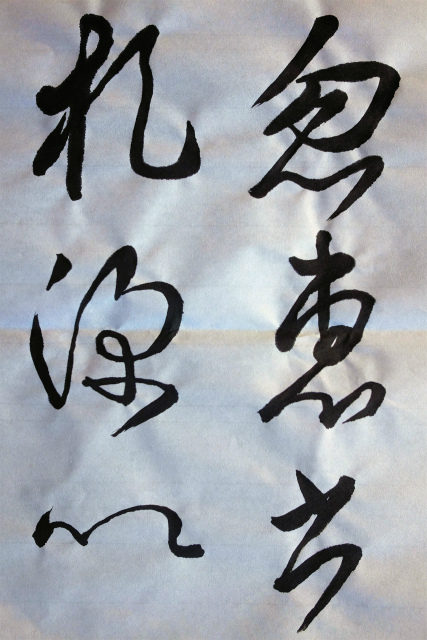 忽惠書
札深以